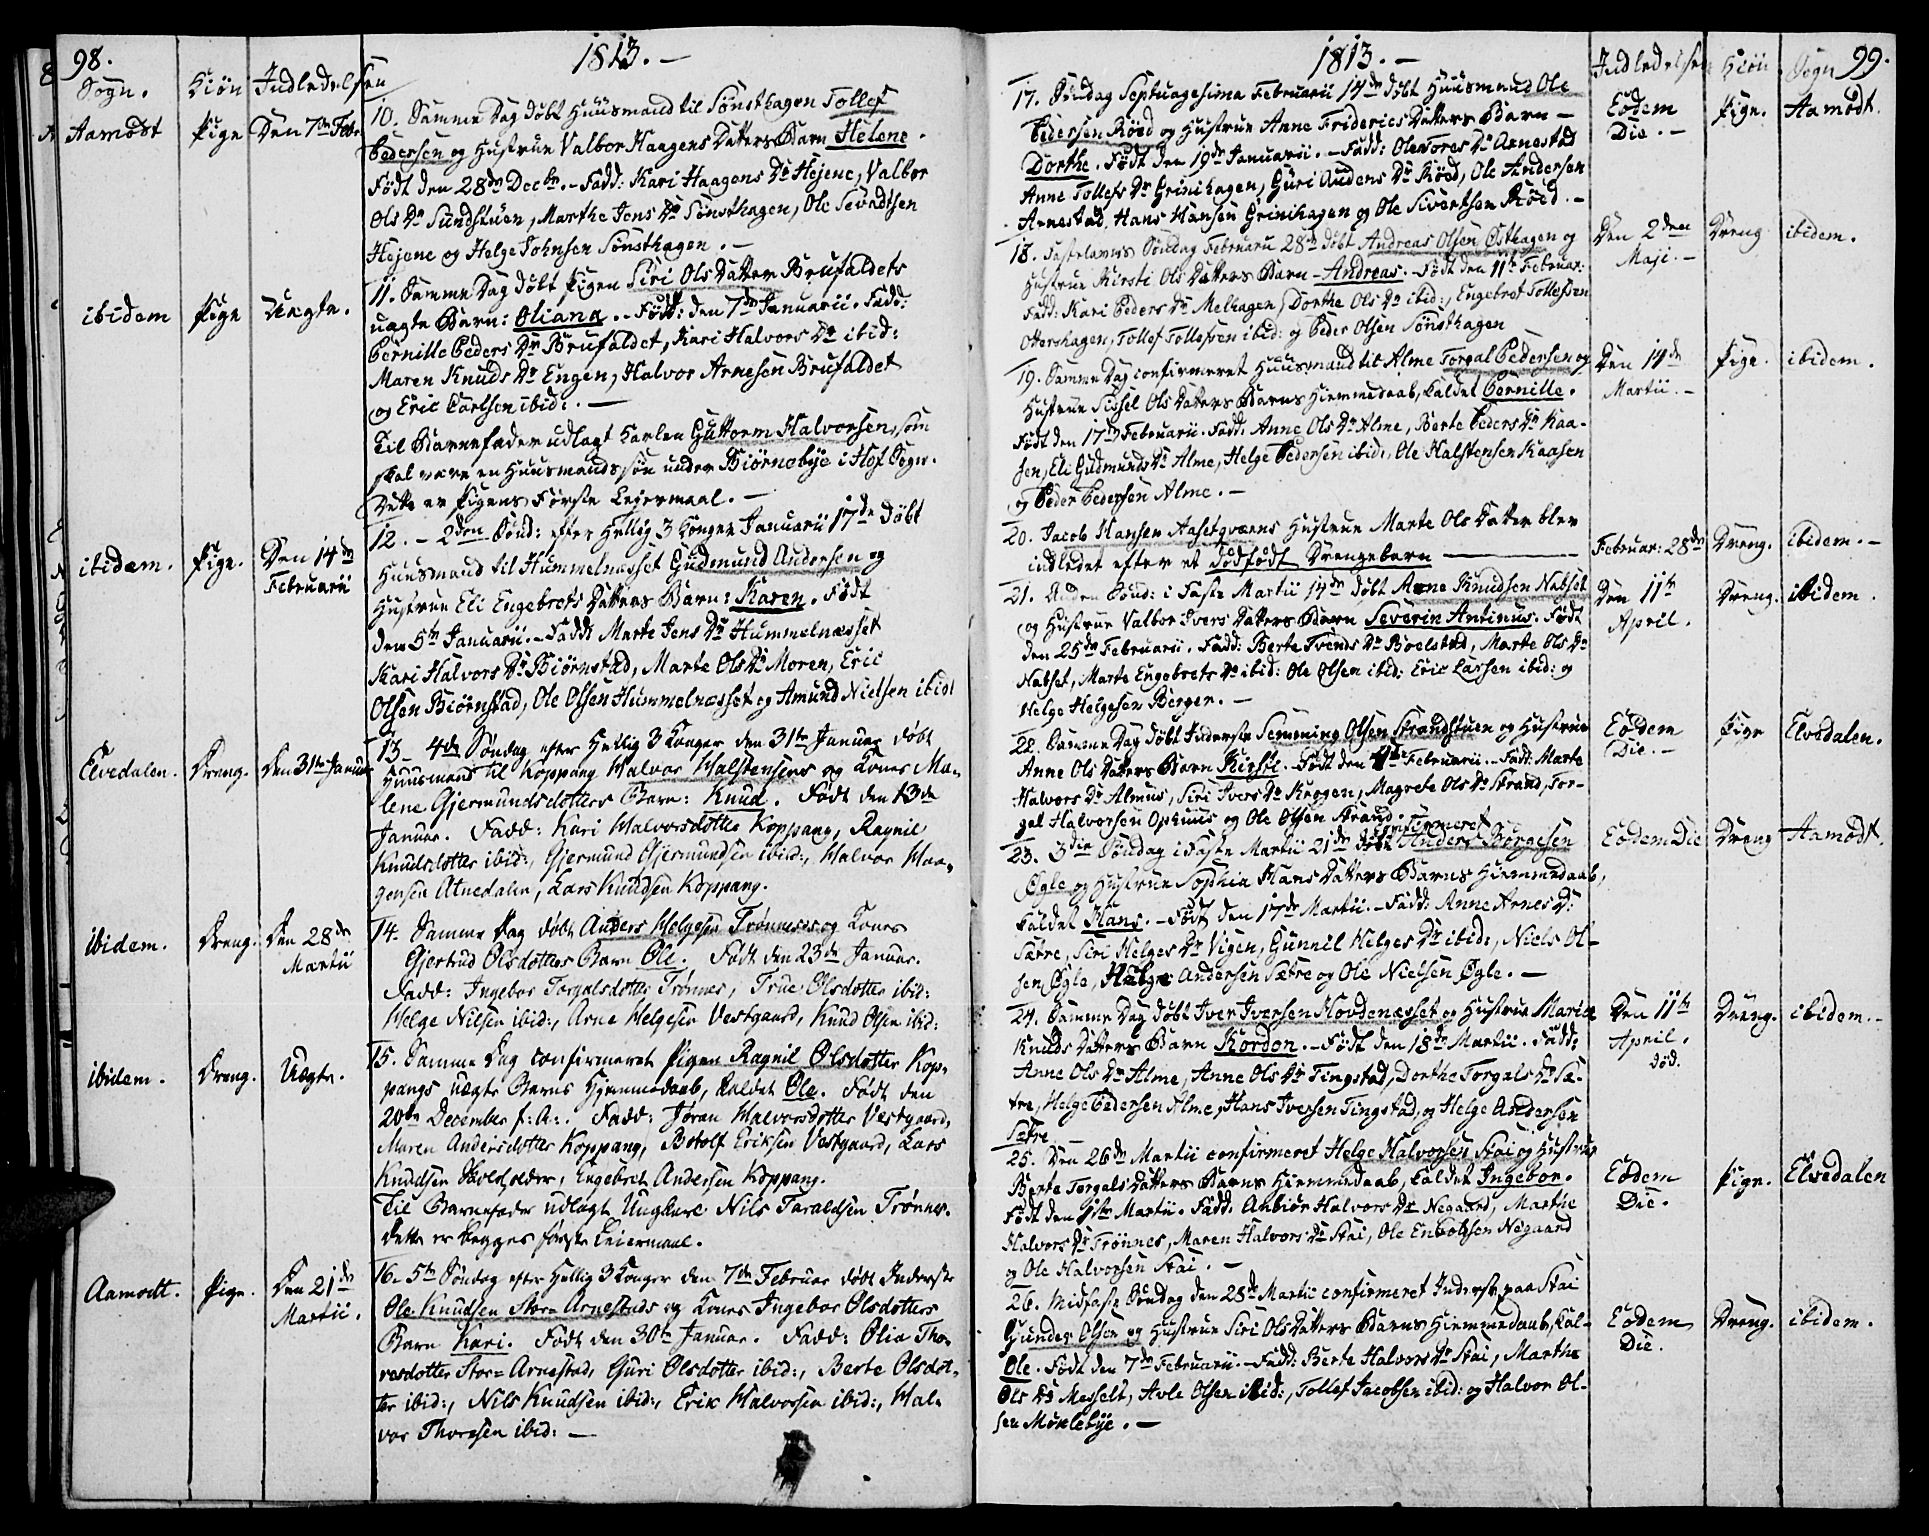 98.
1813. –
Sogn. Kiön Indledelsen
Aamodt Pige Den 7de Febr.
10. Samme Dag döbt Huusmand til Sönsthagen Tollef
Pedersen og Hustrue Valbor Haagens Datters Barn Helene.
Født den 28de Decbr. – Fadd: Kari Haagens Dr Hejene, Valbor
Ols Dr Sundstuen, Marthe Jens Dr Sönsthagen, Ole
Hejene og Helge Johnsen Sönsthagen. –
ibidem Pige Uægte.
11. Samme Dag döbt Pigen Siri Ols Datter Brufaldets
uægte Barn: Oliana. – Født: den 7de Januarii. Fadd:
Pernille Peders Dr Brufaldet, Kari Halvors Dr ibid:
Maren Knuds Dr Engen, Halvor Arnesen Brufaldet
og Eric Carlsen ibid: . –
Til Barnefader udlagt Karlen Guttorm Halvorsen, som
skal være en Huusmands søn under Biørnebye i Hof Sogn.
Dette er Pigens Første Lejermaal. –
ibidem. Pige. Den 14de Februarii
12. – 2den Sönd: efter Hellig 3 Konger Januarii 17de döbt
Huusmand til Hummelnæsset Gudmund Andersen og
Hustrue Eli Engebrets Datters Barn: Karen. Født
den 5te Januarii. – Fadd: Marte Jens Dr Hummelnæsset
Kari Halvors Dr Biörnstad, Marte Ols Dr Moren, Eric
Olsen Biörnstad, Ole Olsen Hummelnæsset og Amund Nielsen ibid:
Elvedalen. Dreng. Den 31te Januar
13. 4de Söndag efter Hellig 3 Konger den 31te Januar döbt
Huusmand til Koppang Halvor Halstensens og Kones Ma-
lene Gjermundsdotters Barn: Knud. Født den 13de
Januar. Fadd: Kari Halvorsdotter Koppang, Ragnil
Knudsdotter ibid:, Gjermund Gjermundsen ibid:, Halvor Haa-
gensen Atnedalen, Lars Knudsen Koppang.
ibidem. Dreng. Den 28de Martii
14. Samme Dag döbt Anders Helgesen Trønnes og Kones
Gjertrud Olsdotters Barn Ole. Født den 23de Januar.
Fadd: Ingebor Torgalsdotter Trønnes, True Olsdotter ibid:
Helge Nilsen ibid:, Arne Helgesen Vestgaard, Knud Olsen ibid:
ibidem. Dreng. Uægte.
15. Samme Dag confirmeret Pigen Ragnil Olsdotter Kop-
pangs uægte Barns Hjemmedaab, kaldet Ole. Født den
20de December f: A: . Fadd: Jøran Halvorsdotter Vestgaard,
Maren Andersdotter Koppang, Botolf Eriksen Vestgaard, Lars
Knudsen Skoleholder, Engebret Andersen Koppang.
Til Barnefader udlagt Ungkarl Nils Taraldsen Trønnes.
Dette er begges første Leiermaal.
Aamodt. Pige. Den 21de Martii.
16. 5te Söndag efter Hellig 3 Konger den 7de Februar döbt Inderste
Ole Knudsen Stor-Arnestads og Kones Ingebor Olsdotters
Barn Kari. Født den 30te Januar. Fadd: Olia Tho-
resdotter Stor-Arnestad, Guri Olsdotter ibid:, Berte Olsdot-
ter ibid:, Nils Knudsen ibid:, Erik Halvorsen ibid:, Hal-
vor Thoresen ibid: –
1813. –
Indledelsen Kiön Sogn 99.
17. Söndag Septuagesima Februarii 14de döbt Huusmand Ole
Pedersen Röed og Hustrue Anne Friderics Datters Barn –
Dorthe. Født den 19de Januarii. – Fadd: Ole Tores Dr Arnestad
Anne Tollefs Dr Grinihagen, Guri Audens Dr Röed, Ole Andersen
Arnestad, Hans Hansen Grinihagen og Ole Sivertsen Röed. –
Eodem Die. – Pige. Aamodt.
18. Fastelavns Söndag Februarii 28de döbt Andreas Olsen Østhagen og
Hustrue Kirsti Ols Datters Barn – Andreas. – Født den 11te Februar:
Fadd: Kari Peders Dr Melhagen, Dorthe Ols Dr ibid:, Engebret Tollefsen
Ottershagen, Tollef Tollefsen ibid: og Peder Olsen Sönsthagen
Den 2den Maji. – Dreng ibidem.
19. Samme Dag confirmeret Huusmand til Alme Torgal Pedersen og
Hustrue Sissel Ols Datters Barns Hiemmedaab, kaldet Pernille.
Født den 17de Februarii. Fadd: Anne Ols Dr Alme, Berte Peders Dr Kaa-
sen, Eli Gudmunds Dr Alme, Helge Pedersen ibid:, Ole Halstensen Kaasen
og Peder Pedersen Alme. –
Den 14de Martii. – Pige. ibidem.
20. Jacob Hansen Aasetqværns Hustrue Marte Ols Datter blev
indledet efter et dödfødt Drengebarn
Februar: 28de Dreng. ibidem. –
21. Anden Sönd: i Faste Martii 14de döbt Arne Knudsen Nabset
og Hustrue Valbor Ivers Datters Barn Severin Antinus. Født
den 25de Februarii. Fadd: Berte Svends Dr Boelstad, Marte Ols Dr
Nabset, Marte Engebrets Dr ibid: Ole Olsen ibid: Eric Larsen ibid: og
Helge Helgesen Berger. –
Den 11te April. Dreng. ibidem.
22. Samme Dag döbt Inderste Semming Olsen Strandstuen og Hustrue
Anne Ols Datters Barn Kirsti. – Født den Februarii. – Fadd: Marte
Halvors Dr Almus, Siri Ivers Dr Krogen, Magrete Ols Dr Strand, Tor-
gal Halvorsen Ophuus og Ole Olsen Strand.
Eodem Die. – Pige Elvedalen.
23. 3die Söndag i Faste Martii 21de döbt confirmeret Anders Börgesen
Øgle og Hustrue Sophia Hans Datters Barns Hiemmedaab,
Kaldet Hans. – Født den 17de Martii. – Fadd: Anne Arnes Dr
Sætre, Siri Helges Dr Vigen, Gunnil Helges Dr ibid:, Niels Ol-
sen Øgle, Helge Andersen Sætre og Ole Nielsen Øgle. –
Eodem Die Dreng Aamodt.
24. Samme Dag döbt Iver Iversen Hovdenæsset og Hustrue Marie
Knuds Datters Barn Kordon. – Født den 18de Martii. Fadd:
Anne Ols Dr Alme, Anne Ols Dr Tingstad, Dorthe Torgals Dr Sæ-
tre, Helge Pedersen Alme, Hans Iversen Tingstad, og Helge Andersen
Sætre –
Den 11te April. död. Dreng. ibidem. –
25. Den 26de Martii confirmeret Helge Halvorsen Stai og Hustrue
Berte Torgals Datters Barns Hiemmedaab, kaldet Ingebor.
Født den Martii. Fadd: Anbiør Halvors Dr Negaard, Marthe
Halvors Dr Trönnes, Maren Halvors Dr Stai, Ole Negaard
og Ole Halvorsen Stai. –
Eodem Die. Pige. Elvedalen
26. Midfaste Söndag den 28de Martii confirmeret Inderst paa Stai
Gunder Olsen og Hustrue Siri Ols Datters Barns Hiemmedaab, Kal-
Ole. Født den 7de Februarii. – Fadd: Berte Halvors Dr Stai, Marthe
Ols Dr Messelt, Avle Olsen ibid:, Tollef Jacobsen ibid: og Halvor Ol-
sen Møklebye. –
Eodem Die. Dreng. ibidem.